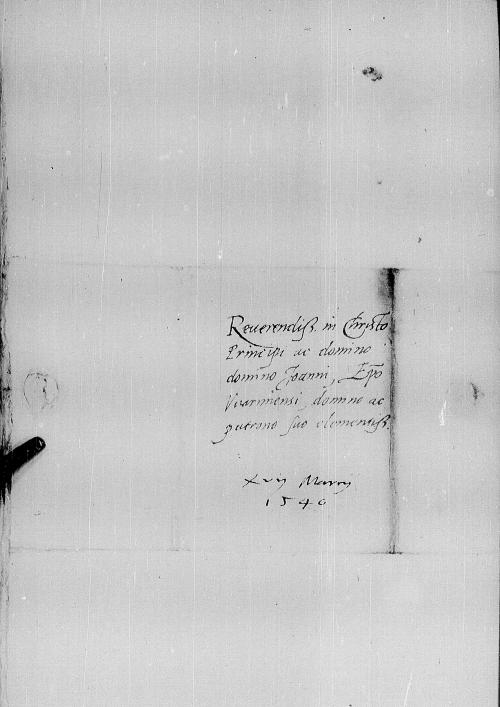 Reuerendiss. in Christo
Principi ac domino
domino Joanni, Epo
Vuarmiensi domino ac
patrono suo clementiss.
xvij Marcij
1540